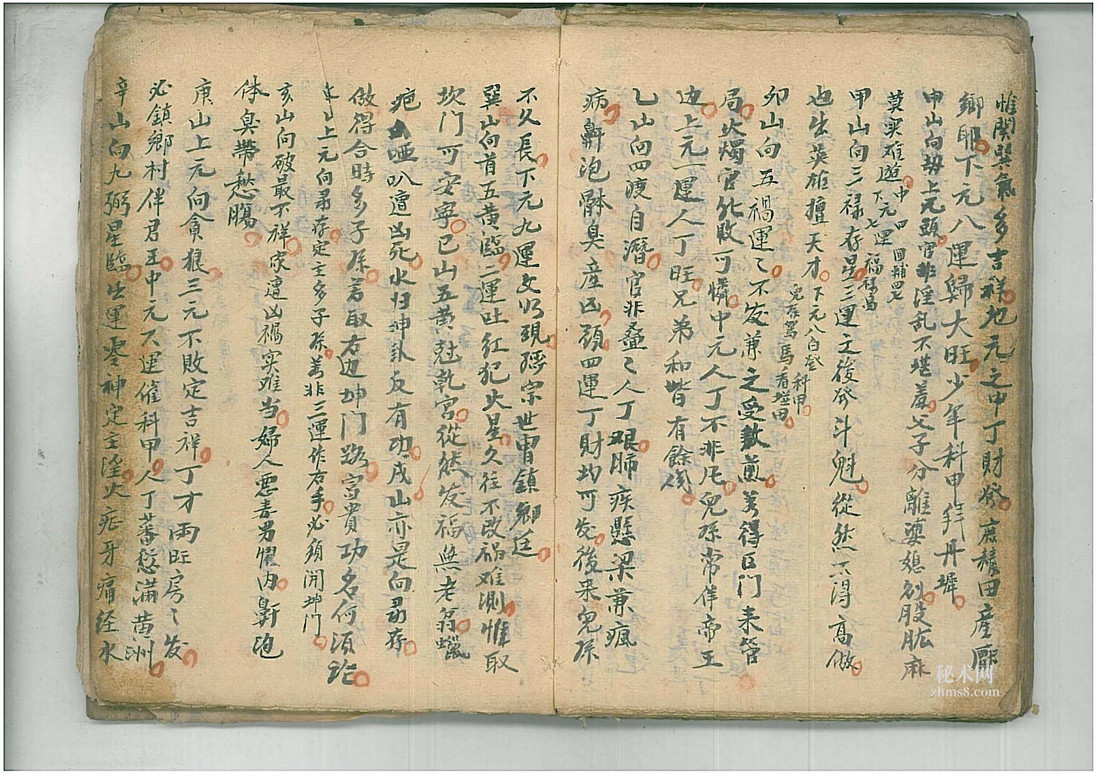 惟関巽氣多吉祥地元之中丁財發庶積田產厫
鄉耶下元八運歸大旺少年科甲拜丹墀
申山向劫上元頭官非淫乱不堪羞父子分離婆媳刎股肱麻
莫笑雄逰中四囬辅四七
下元七運福禄昌
甲山向三禄存星三運之後發斗魁從然不得高做
也生英雄擅天才下元八白登科甲
兒孫駕馬有塩田
卯山向五禍運之不發兼之受歎煎若得巨门未管
局火燭官非敗可憐中元人丁不非凡兒孫常伴帝王
边上元一運人丁旺兄弟和皆有餘伐
乙山向四渡自潛官非叠之人丁艱肺疾懸梁兼瘋
病鼻泡躰臭産凶頭四運丁財均可發後来兒孫
不久長下元九運文明現孫宗世冑鎮鄉廷
巽山向首五黄臨二運吐红犯火星久往不改禍难測惟取
坎门可安寧巳山五黄冠乾宮從然发福無老翁蠟
疤哑叭遭凶死水归坤卦反有功戌山亦是向尋存
做得合時多子孫若取右边坤门路富貴功名何須论
上元向尋存定主多子孫若非三運作右手必須開坤门
亥山向破最不祥家遭凶禍实难当婦人悪毒男惧内鼻泡
体臭帶愁腸
庚山上元向貪狼三元不敗定吉祥丁才兩旺房之发
必鎮鄉村伴君王中元六運催科甲人丁蕃愁满黄洲
辛山向九弼星臨出運零神定主淫火症牙痛经水
秘术网
zhms8.com